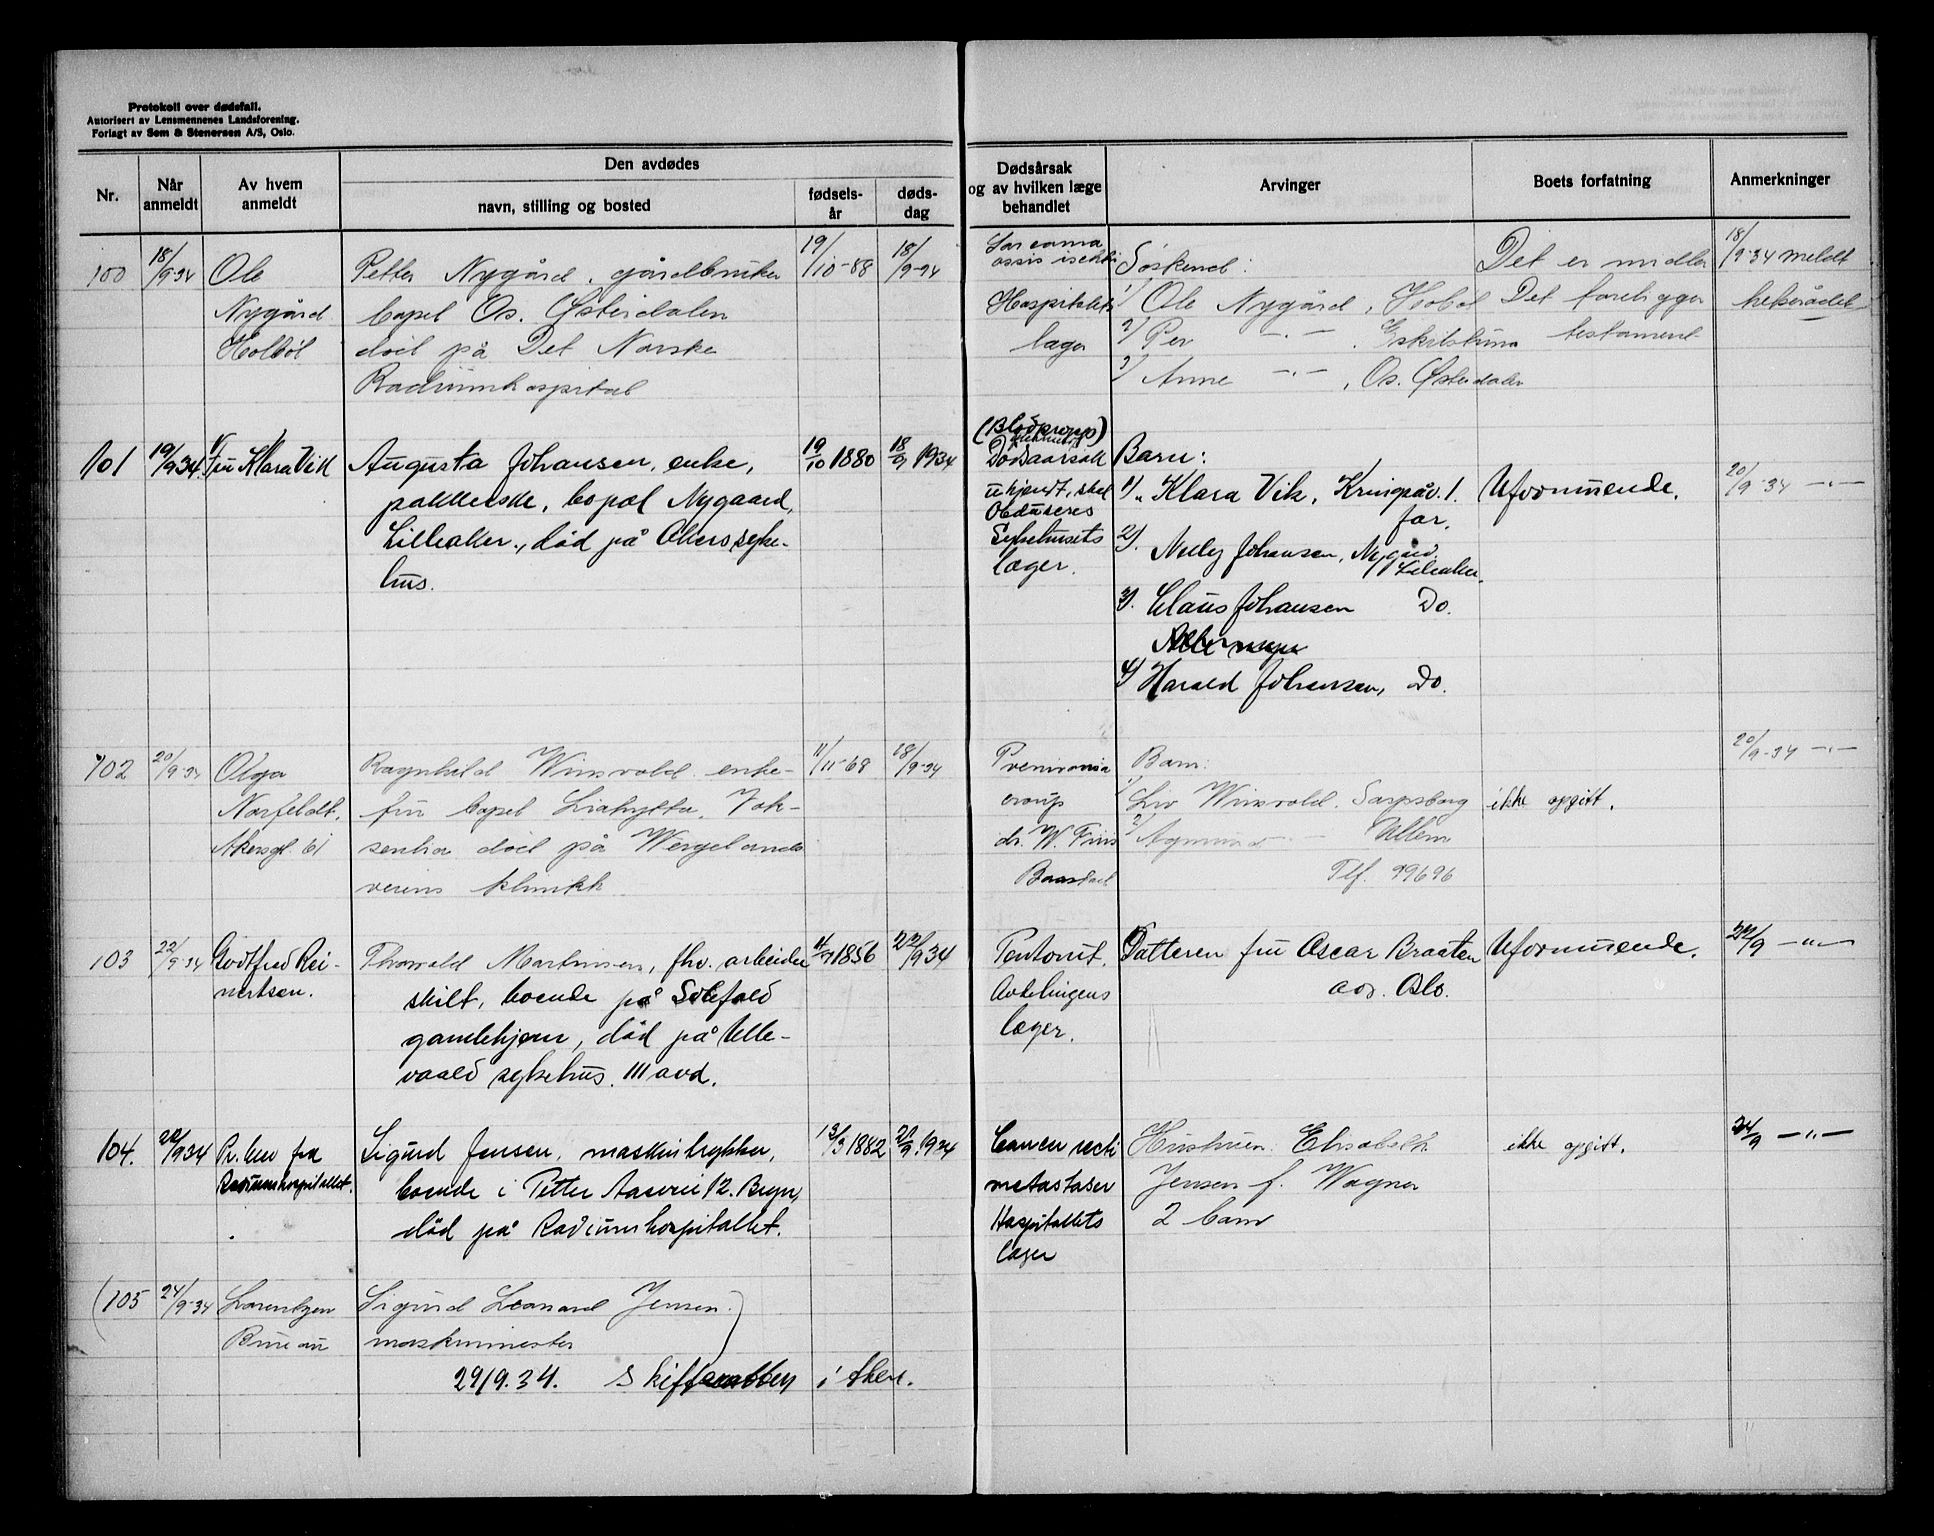 Protokoll over dødsfall.
Autorisert av Lensmennenes Landsforening.
Forlagt av Sem & Stenersen A/S, Oslo.
Nr.
Når anmeldt
Av hvem anmeldt
Den avdødes
navn, stilling og bosted
fødsels-år
døds-dag
Dødsårsak og av hvilken læge behandlet
Arvinger
Boets forfatning
Anmerkninger
100
18/9-34
Ole
Nygård
Petter Nygård, gårdbruker
bopel Os. Østerdalen
død på Det Norske
Radiumhospital
19/10-88
18/9-34
Sarcoma
Hospitalets
læger
Søskend:
1) Ole Nygård, Hobøl
2) Per -"- . Eskilstuna
3) Anne -"- , Os. Østerdalen
Det er midler
Det foreligger
testament
18/9-34 meldt
101
19/9 34.
Fru Klara Vik
Augusta Johansen, enke,
pakkerske, bopæl Nygaard,
Lilleaker., død på Akers syke-
hus.
19/10 1880
18/9 1934
(Blodpropp)
Dødsaarsak
ukjendt, skal
Obduseres
Sykehusets
læger.
Barn:
1) Klara Vik, Kringsjåv. 1.
2). Nelly Johansen, Nygård.
Lilleaker.
3). Claus Johansen Do.
4) Harald Johansen, Do.
Uformuende.
20/9-34 -"-
102
20/9-34
Olga
Norfeldt,
Akersgt. 61
Ragnhild Winsvold enke-
fru bopel Liahytta, Vok-
senlia død på Wergelands-
veiens klinikk
11/11-68
18/9-34
dr. W. Friis
Barn:
1) Liv Winsvold. Sarpsborg
2)
Tlf. 99696
ikke opgitt.
20/9-34 -"-
103
22/9-34
Godtfred Rei-
nertsen.
Thorvald Martinsen, fhv. arbeider
skilt, boende på Solefald
gamlehjem, død på Ulle-
vaald sykehus. III avd.
1856
22/9 34
Avdelingens
læger.
Datteren fru Oscar Braaten
adr. Oslo.
Uformuende.
22/9 -"-
104.
22/9 34
Radiumhospitallet.
Sigurd Jensen, maskintrykker,
boende i Petter Aasvei 12. Bryn,
død på Radiumhospitallet.
13/3 1882
1934
Cancer recti
metastaser
Hospitallets
læger
Hustruen: Elisabeth
Jensen f. Wagner
2 barn
ikke opgitt.
24/9 -"-
(105
24/9-34
Lorentzen
Bureau
Sigurd Leonard Jensen )
maskinmester
29/9.34. Skifteretten i Aker.